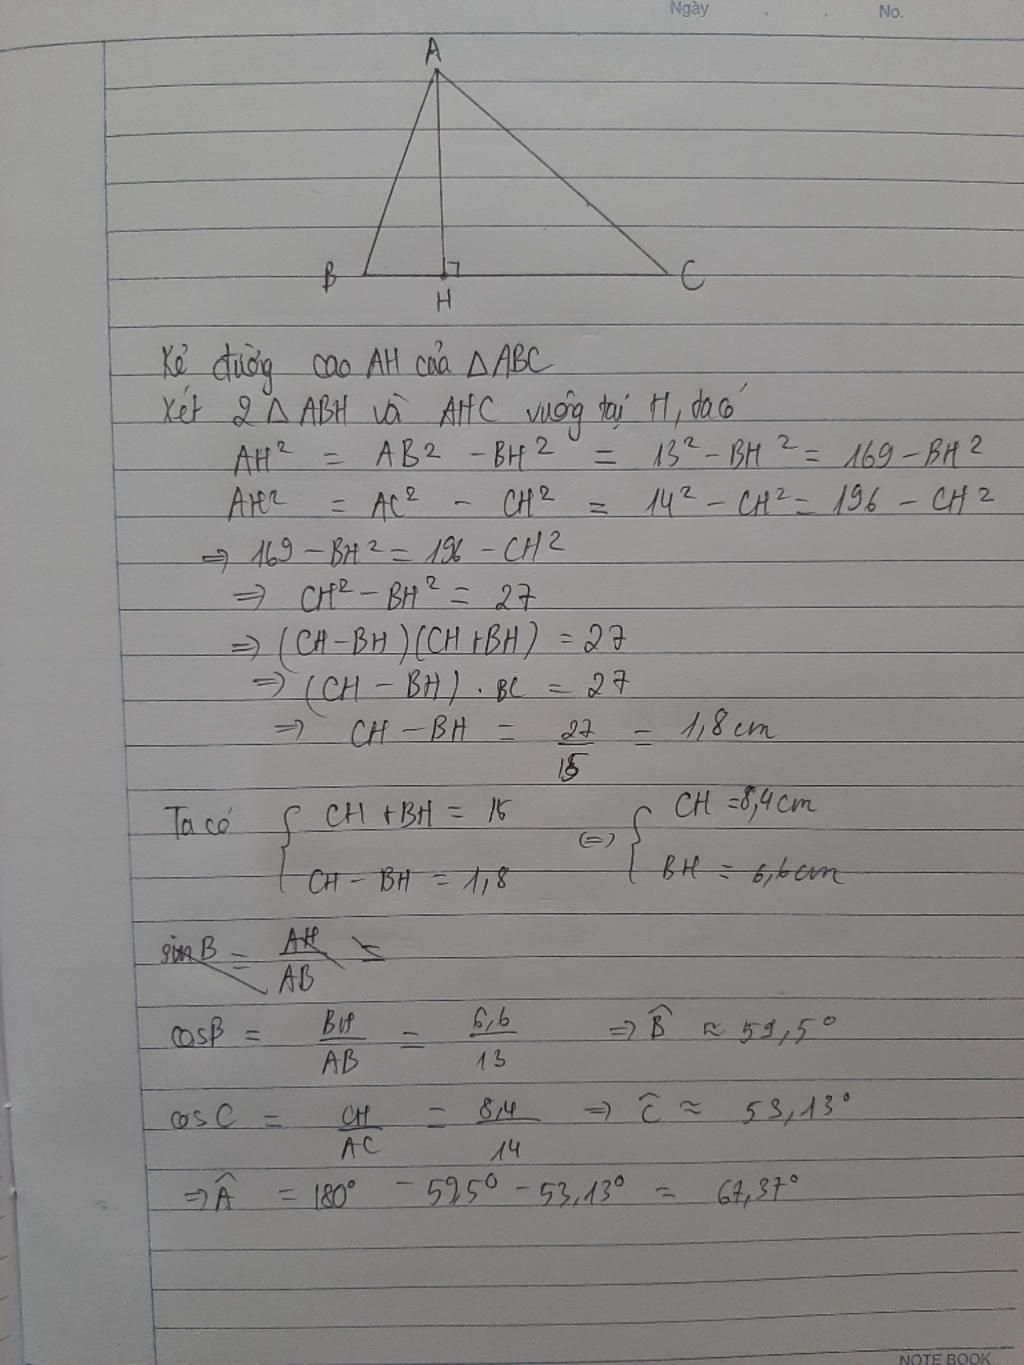 Ngày . . No.
A
B H C
Kẻ đường cao AH của △ABC
Xét 2 △ ABH và AHC vuông tại H, ta có
AH² = AB² - BH² = 13² - BH² = 169 - BH²
AH² = AC² - CH² = 14² - CH² = 196 - CH²
=> 169 - BH² = 196 - CH²
=> CH² - BH² = 27
=> (CH - BH)(CH + BH) = 27
=> (CH - BH) . BC = 27
=> CH - BH = 27/15 = 1,8 cm
Ta có { CH + BH = 15 <=> { CH = 8,4 cm
CH - BH = 1,8 BH = 6,6 cm
sin B = AH/AB =
cosB = BH/AB = 6,6/13 => B̂ ≈ 59,5°
cos C = CH/AC = 8,4/14 => Ĉ ≈ 53,13°
=> Â = 180° - 59,5° - 53,13° = 67,37°
NOTE BOOK